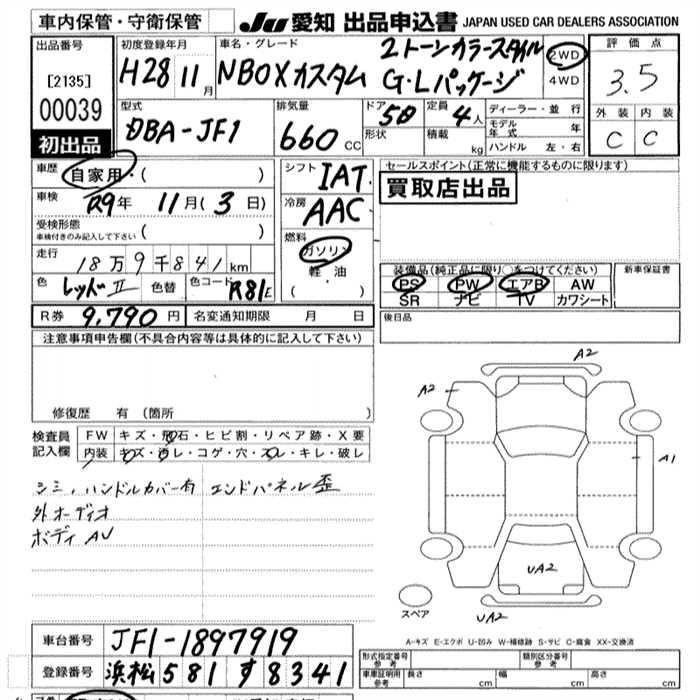 車内保管・守衛保管 JU 愛知 出品申込書 JAPAN USED CAR DEALERS ASSOCIATION
出品番号
[2135]
00039
初出品
初度登録年月
H28 11月
車名・グレード
NBOXカスタム
2トーンカラースタイル
G・Lパッケージ
2WD
4WD
評価点
3.5
外装 内装
C C
型式
DBA-JF1
排気量
660 CC
ドア 5D
形状
定員 4人
積載 kg
ディーラー・並行
モデル年式 年
ハンドル 左・右
車歴
自家用・( )
車検
R9年 11月(3日)
受検形態
車検付きのみ記入して下さい ( )
走行
18万9千841km
色 レッドII 色替 色コード R81E
シフト IAT
冷房 AAC
燃料
ガソリン
軽・油
・( )
セールスポイント(正常に機能するものに限ります)
買取店出品
装備品(純正品に限り○をつけてください) 新車保証書
PS PW エアB AW
SR ナビ TV カワシート
R券 9,790円 名変通知期限 月 日
後日品
注意事項申告欄(不具合内容等は具体的に記入して下さい)
修復歴 有 (箇所
検査員記入欄
FW キズ・飛石・ヒビ割・リペア跡・X要
内装 キズ・汚レ・コゲ・穴・スレ・キレ・破レ
シミ、ハンドルカバー有 エンドパネル歪
外オーディオ
ボディAU
A2
A2
A1
UA2
UA2
スペア
A-キズ E-エクボ U-凹み W-補修跡 S-サビ C-腐食 XX-交換済
車台番号 JF1-1897919
登録番号 浜松 581 す 8341
形式指定番号 参考 類別区分番号 参考
車庫証明用参考 長さ cm 幅 cm 高さ cm